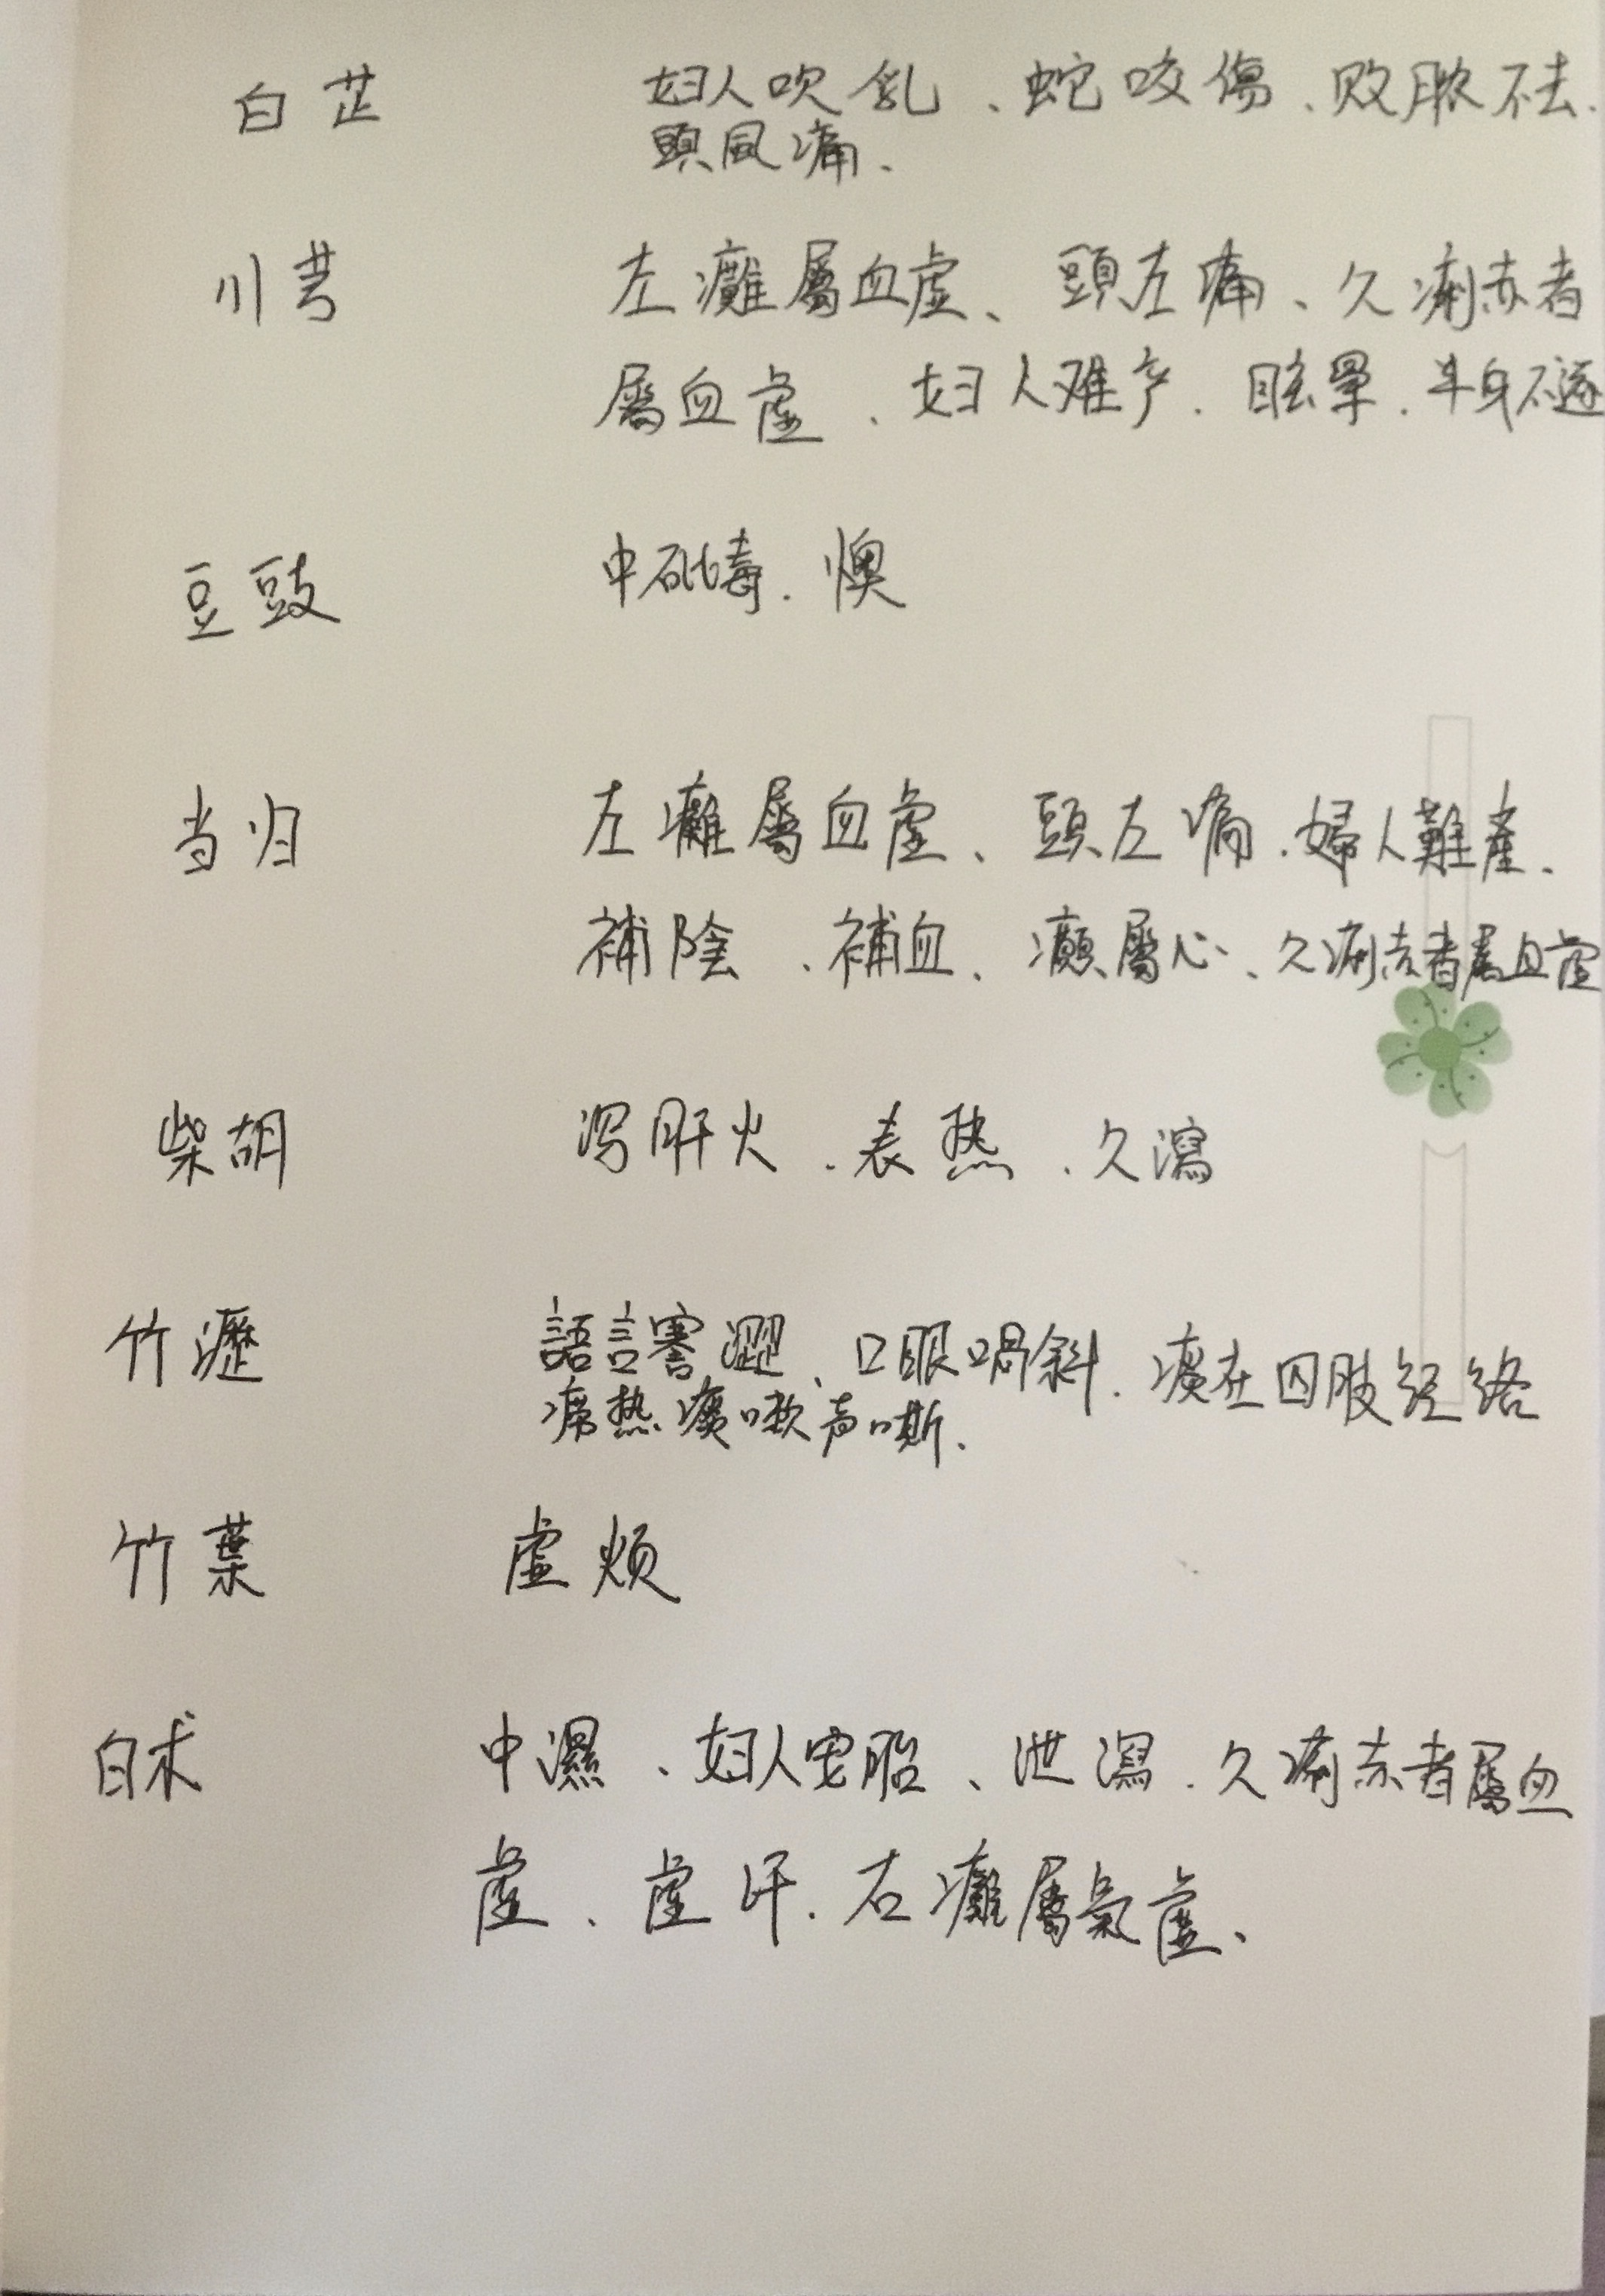 白芷 妇人吹乳、蛇咬傷、败脓不去、
頭風痛、
川芎 左癱屬血虚、頭左痛、久痢赤者
屬血虚、妇人难产、眩暈、半身不遂
豆豉 中砒毒、懊
当归 左癱屬血虚、頭左痛、婦人難產、
補陰、補血、癲屬心、久痢赤者屬血虚
柴胡 泻肝火、表热、久瀉
竹瀝 語言謇澀、口眼喎斜、痰在四肢经络
热痰嗽声嘶、
竹葉 虚烦
白术 中濕、妇人安胎、泄瀉、久痢赤者屬血
虚、虚汗、右癱屬氣虚、